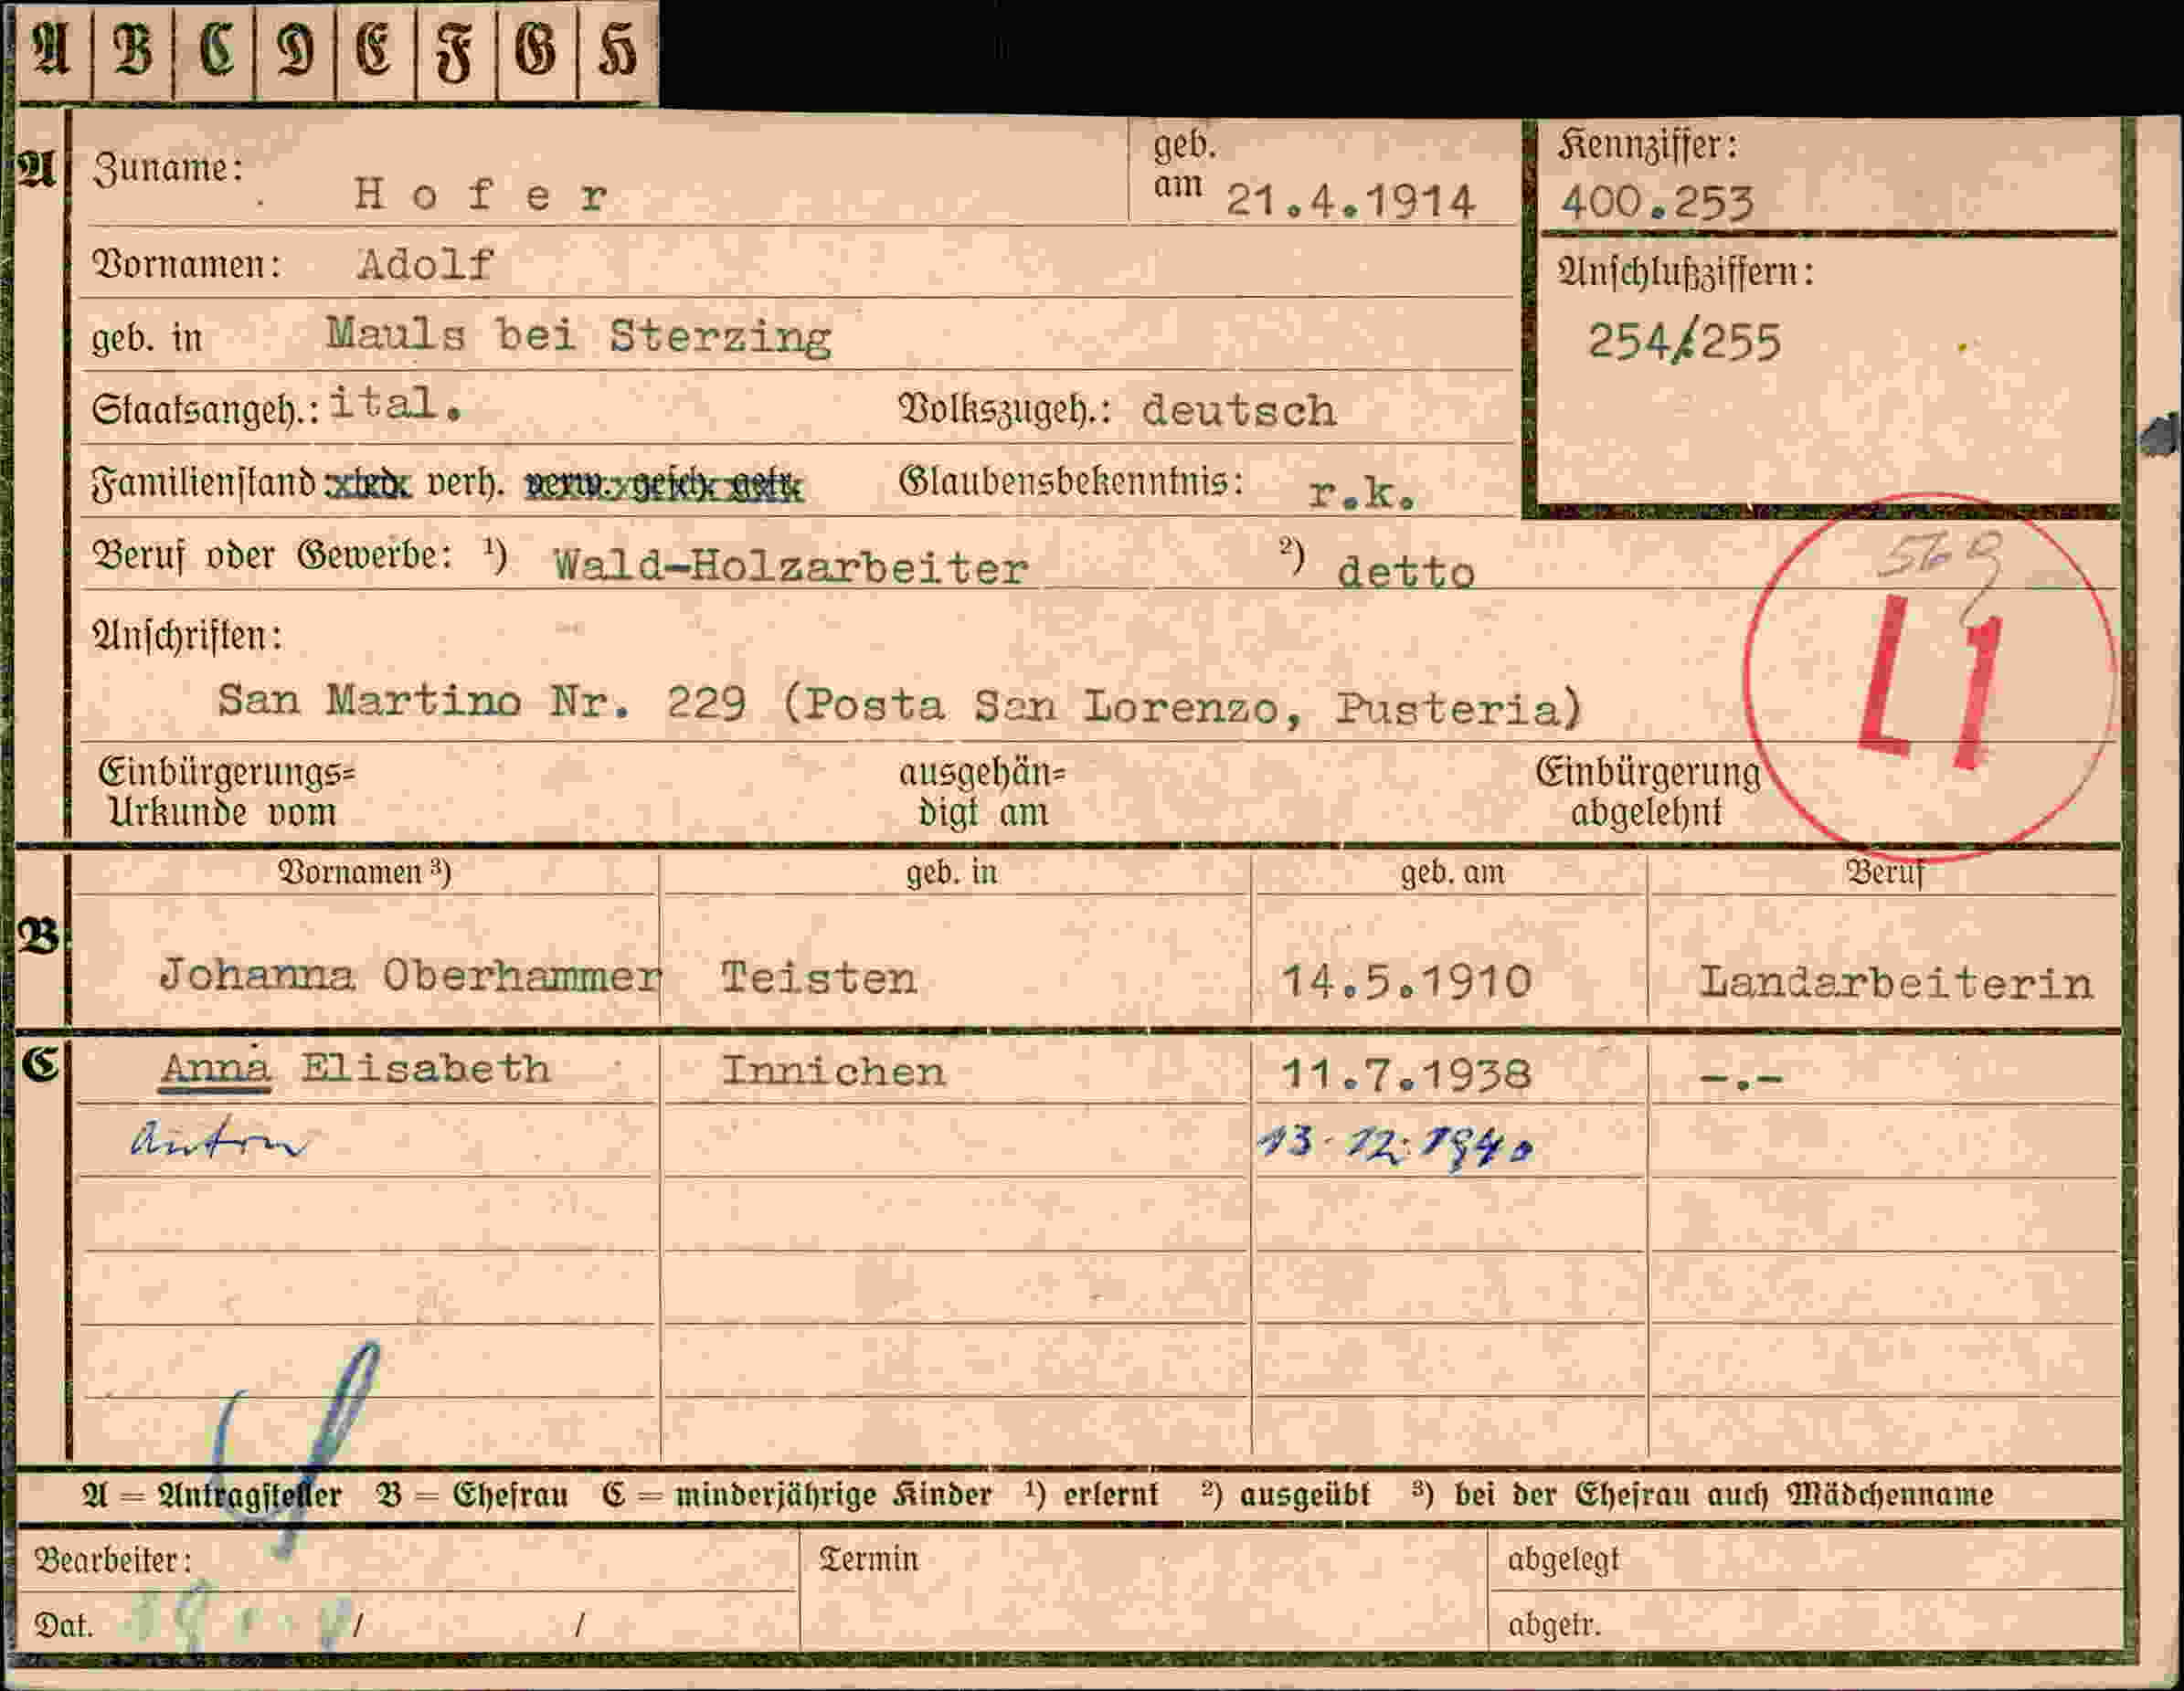 A B C D E F G H
A Zuname: H o f e r geb. am 21.4.1914
Kennziffer: 400.253
Vornamen: Adolf
Anschlußziffern: 254/255
geb. in Mauls bei Sterzing
Staatsangeh.: ital. Volkszugeh.: deutsch
Familienstand verh. Glaubensbekenntnis: r.k.
Beruf oder Gewerbe: ¹) Wald-Holzarbeiter ²) detto
Anschriften:
L1
San Martino Nr. 229 (Posta San Lorenzo, Pusteria)
Einbürgerungs= ausgehän= Einbürgerung
Urkunde vom digt am abgelehnt
Vornamen ³) geb. in geb. am Beruf
B Johanna Oberhammer Teisten 14.5.1910 Landarbeiterin
C Anna Elisabeth Innichen 11.7.1938 -.-
Anton 13.12.1940
A = Antragsteller B = Ehefrau C = minderjährige Kinder ¹) erlernt ²) ausgeübt ³) bei der Ehefrau auch Mädchenname
Bearbeiter: Termin abgelegt
Dat. / / abgetr.